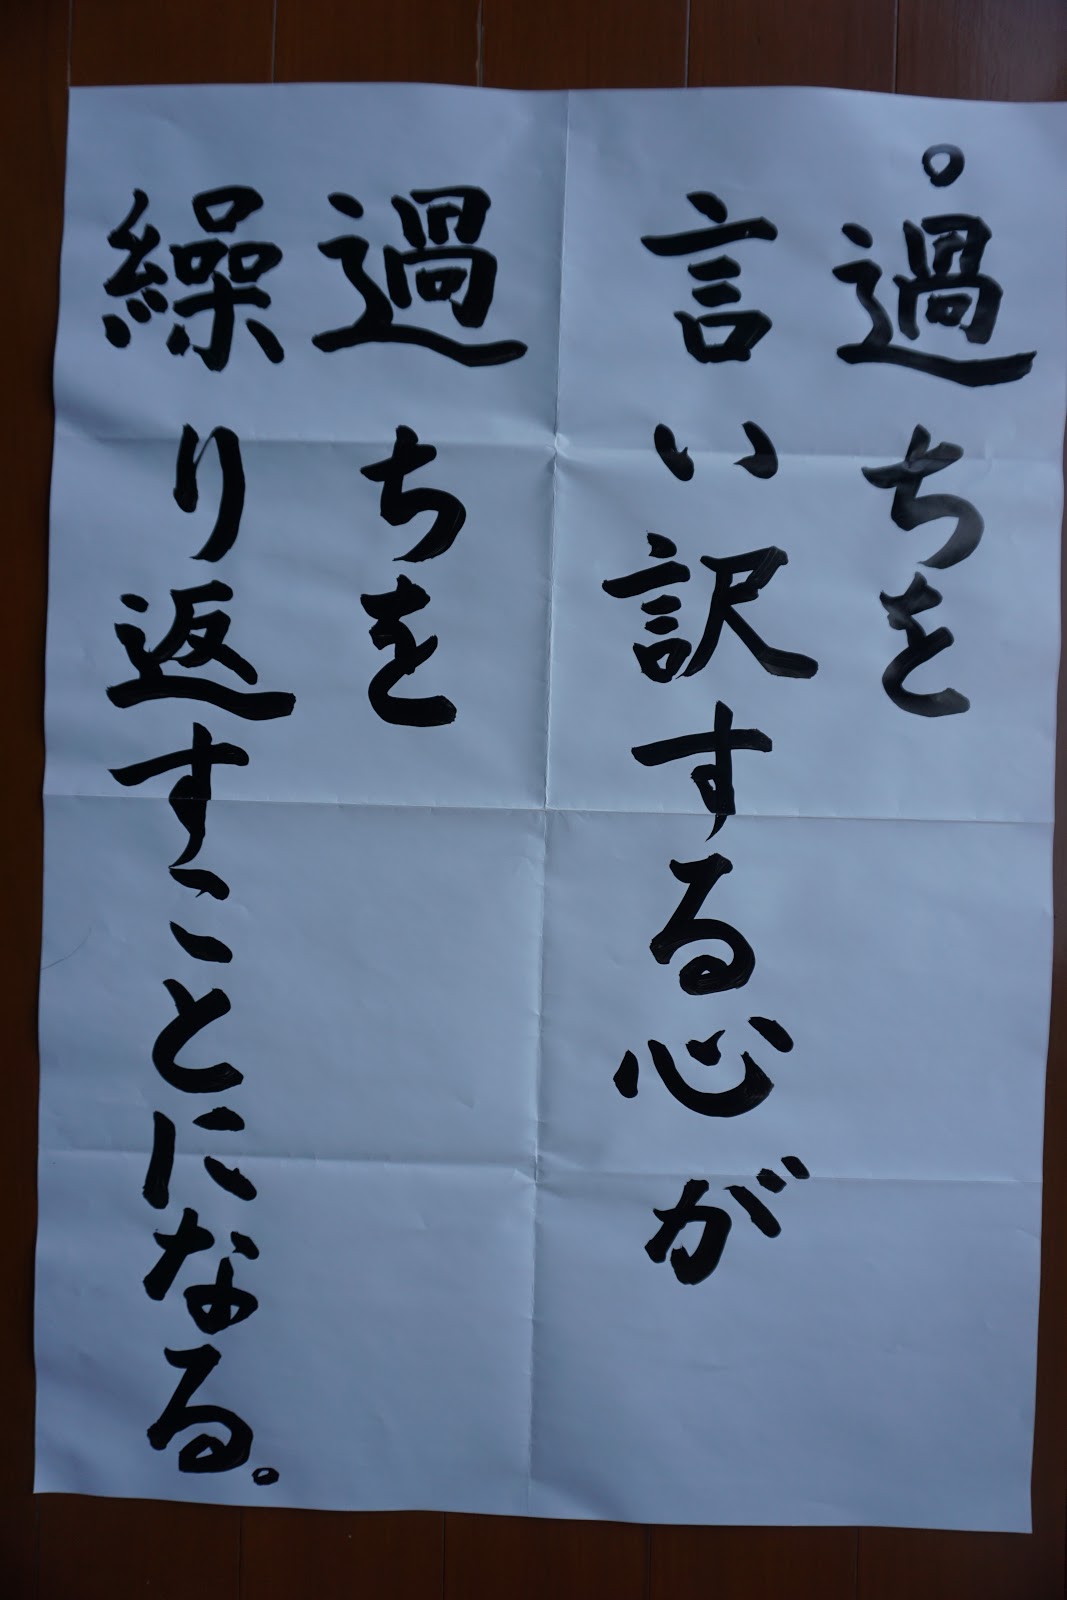 。過ちを
言い訳する心が
過ちを
繰り返すことになる。